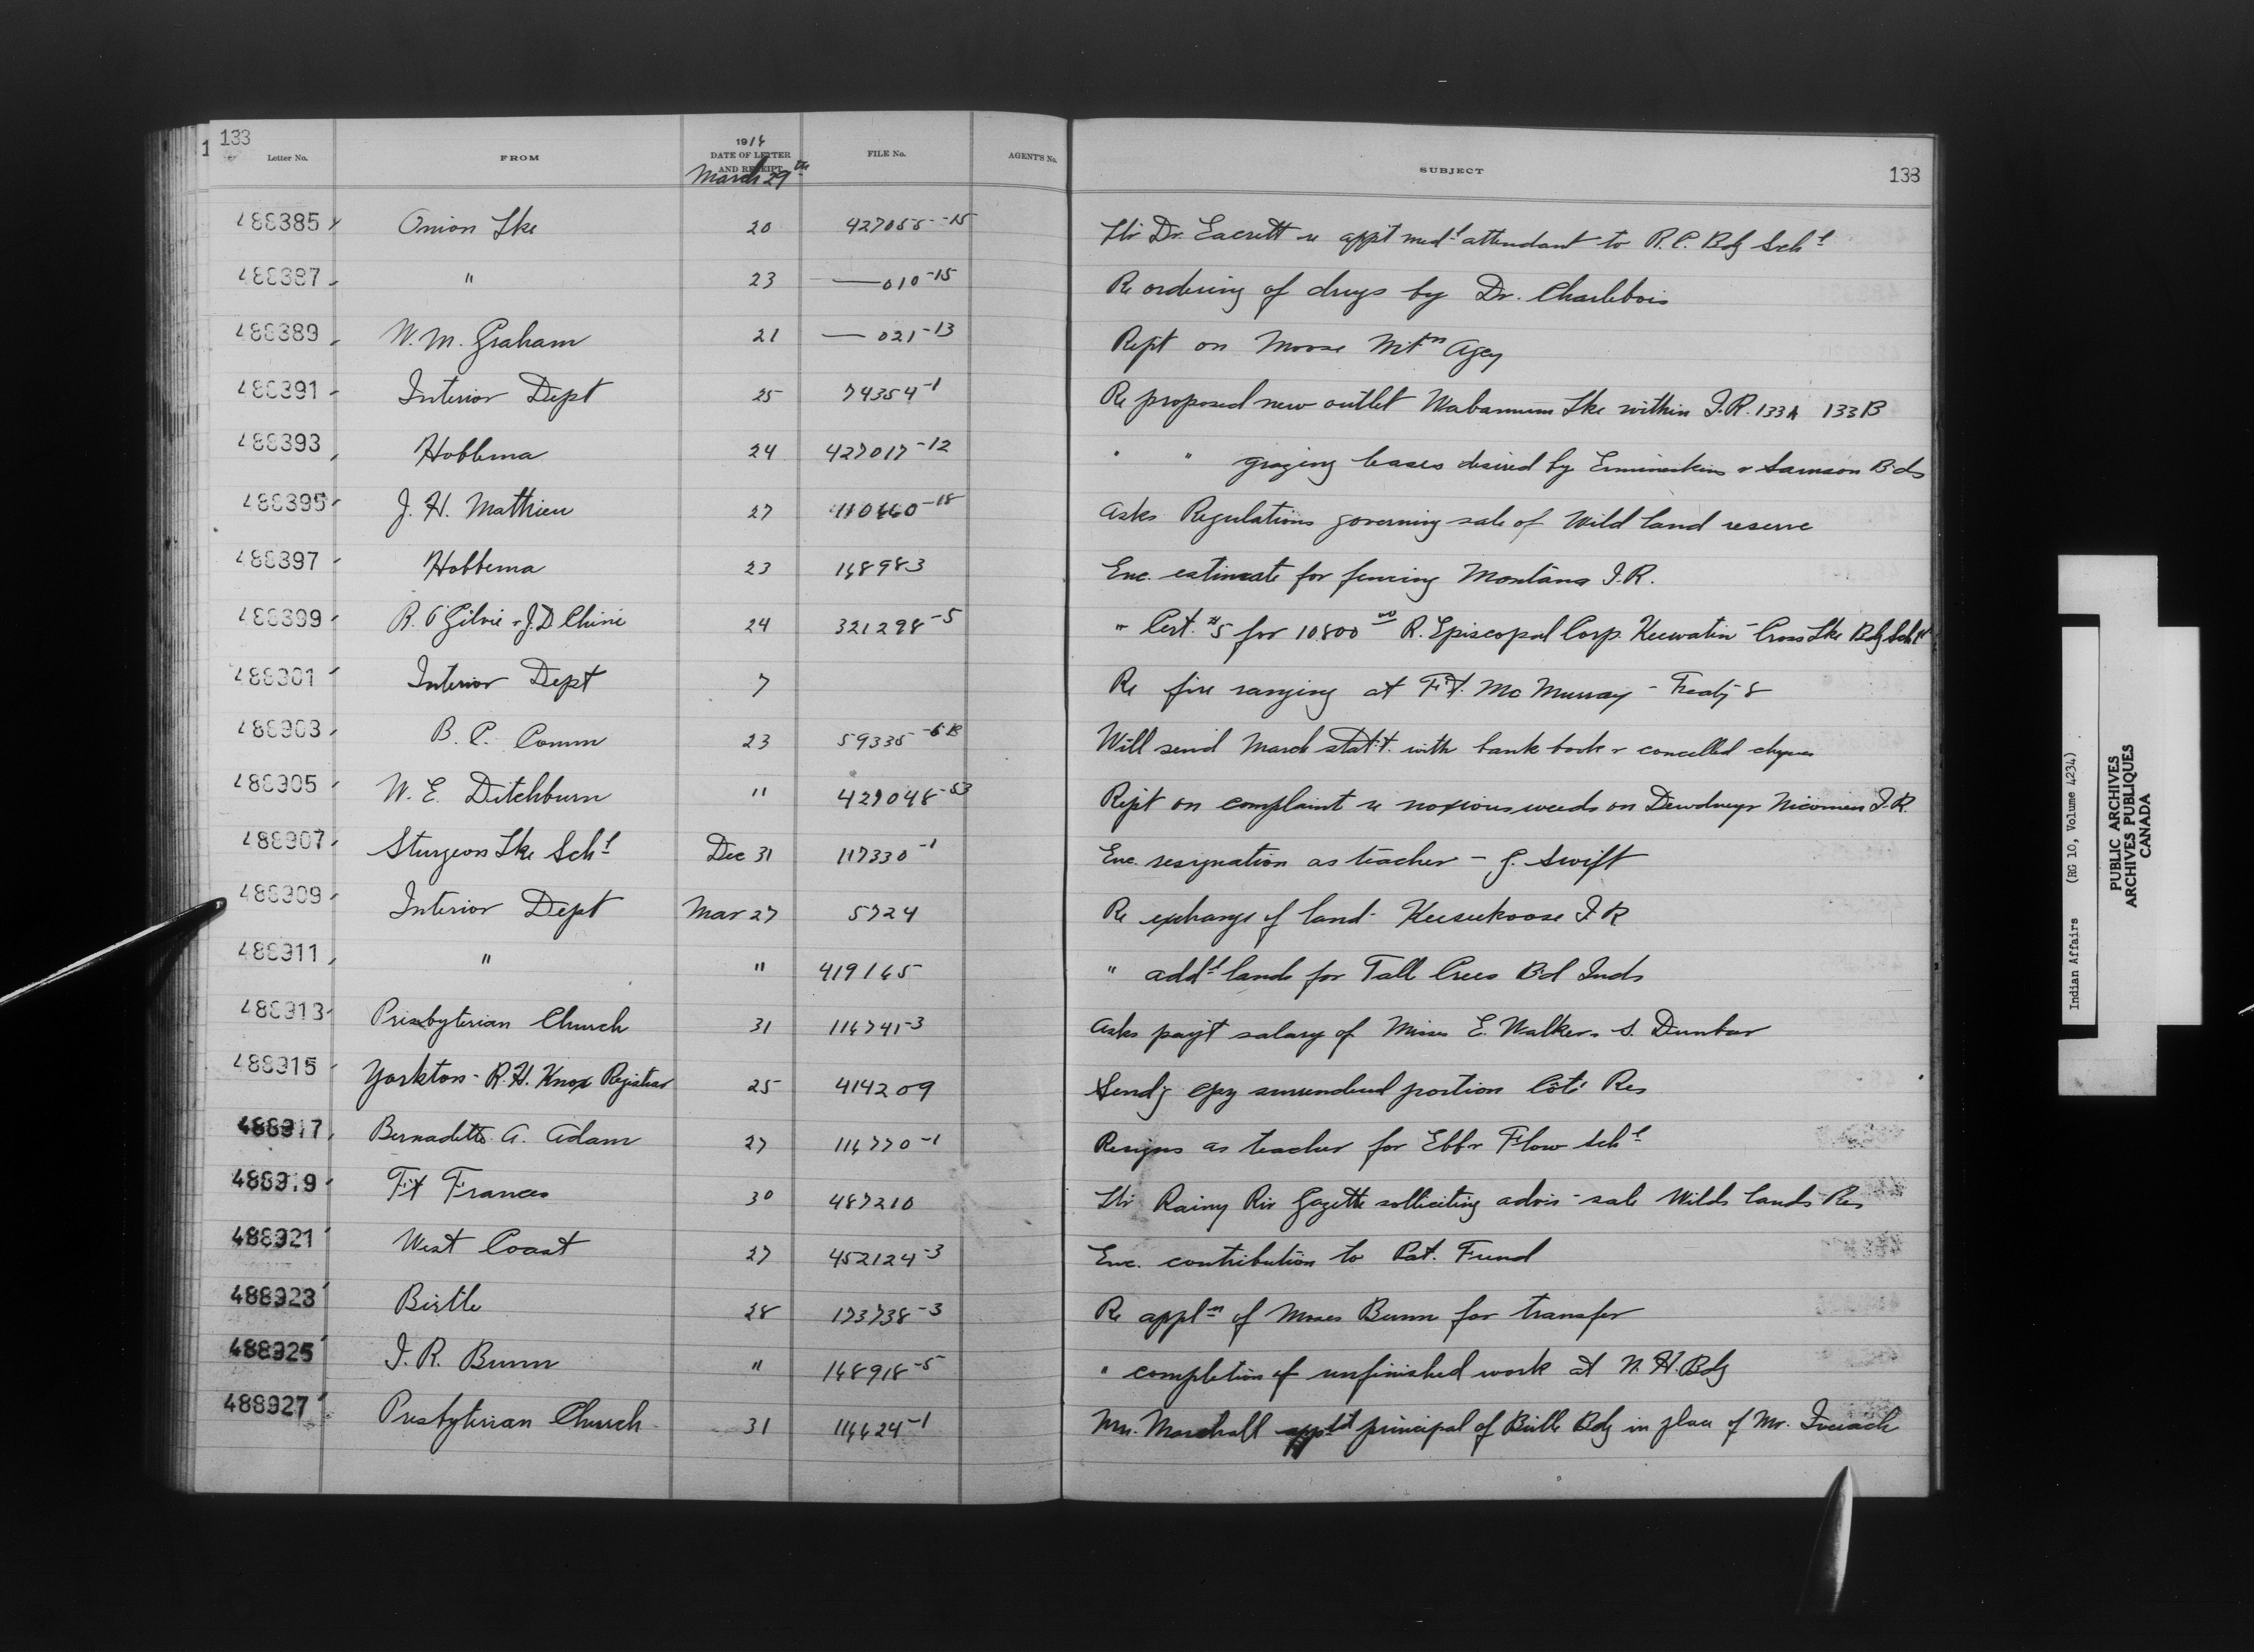 133
Letter No. FROM 1916 DATE OF LETTER AND RECEIPT March 29th FILE No. AGENT'S No. SUBJECT 133
488385 Onion Lke 20 427055-15 Ltr Dr. Eacrett re app't med'l attendant to R.C. Bdg Sch'l
488387 " 23 —010-15 Re ordering of drugs by Dr. Charlebois
488389 W. M. Graham 21 —021-13 Rept on Moose Mtn Agcy
488391 Interior Dept 25 74354-1 Re proposed new outlet Wabamum Lke within I.R. 133A 133B
488393 Hobbema 24 427017-12 " " grazing leases desired by Ermineskins & Samson Bds
488395 J. H. Mathieu 27 -18 Asks Regulations governing sale of Wild land reserve
488397 Hobbema 23 148983 Enc. estimate for fencing Montana I.R.
488399 R. O'Gilvie & J.D. Chéné 24 321298-5 " Cert. #5 for 10800 00 R. Episcopal Corp. Keewatin - Cross Lke Bdg Sch'l
488901 Interior Dept 7 Re fire ranging at Ft. Mc Murray - Treaty 8
488903 B. C. Comm 23 59335-6B Will send March stat't. with bank book & cancelled cheques
488905 W. E. Ditchburn " 427048-53 Rep't on complaint re noxious weeds on Dewdneys Nicomen I.R.
488907 Sturgeon Lke Sch'l Dec 31 117330-1 Enc. resignation as teacher - J. Swift
488909 Interior Dept Mar 27 5724 Re exchange of land - Keesekoose I R
488911 " " 419145 " add'l lands for Tall Crees Bd Inds
488913 Presbyterian Church 31 114741-3 Asks pay't salary of Misses E. Walker & S. Dunbar
488915 Yorkton - R. H. Knox Registrar 25 414209 Send'g cpy surrendered portion Côté Res
488917 Bernadette A. Adam 27 114770-1 Resigns as teacher for Ebb & Flow Sch'l
488919 Ft Frances 30 487210 Ltr Rainy Riv Gazette solliciting advis - sale Wilds Lands Res
488921 West Coast 27 452124-3 Enc. contribution to Pat. Fund
488923 Birtle 28 173738-3 Re appl'n of Moses Bunn for transfer
488925 J. R. Bunn " 148918-5 " completion of unfinished work at N. H. Bdg
488927 Presbyterian Church 31 114424-1 Mr. Marshall appt'd principal of Birtle Bdg in place of Mr. Iverach
Indian Affairs (RG 10, Volume 4234)
PUBLIC ARCHIVES
ARCHIVES PUBLIQUES
CANADA